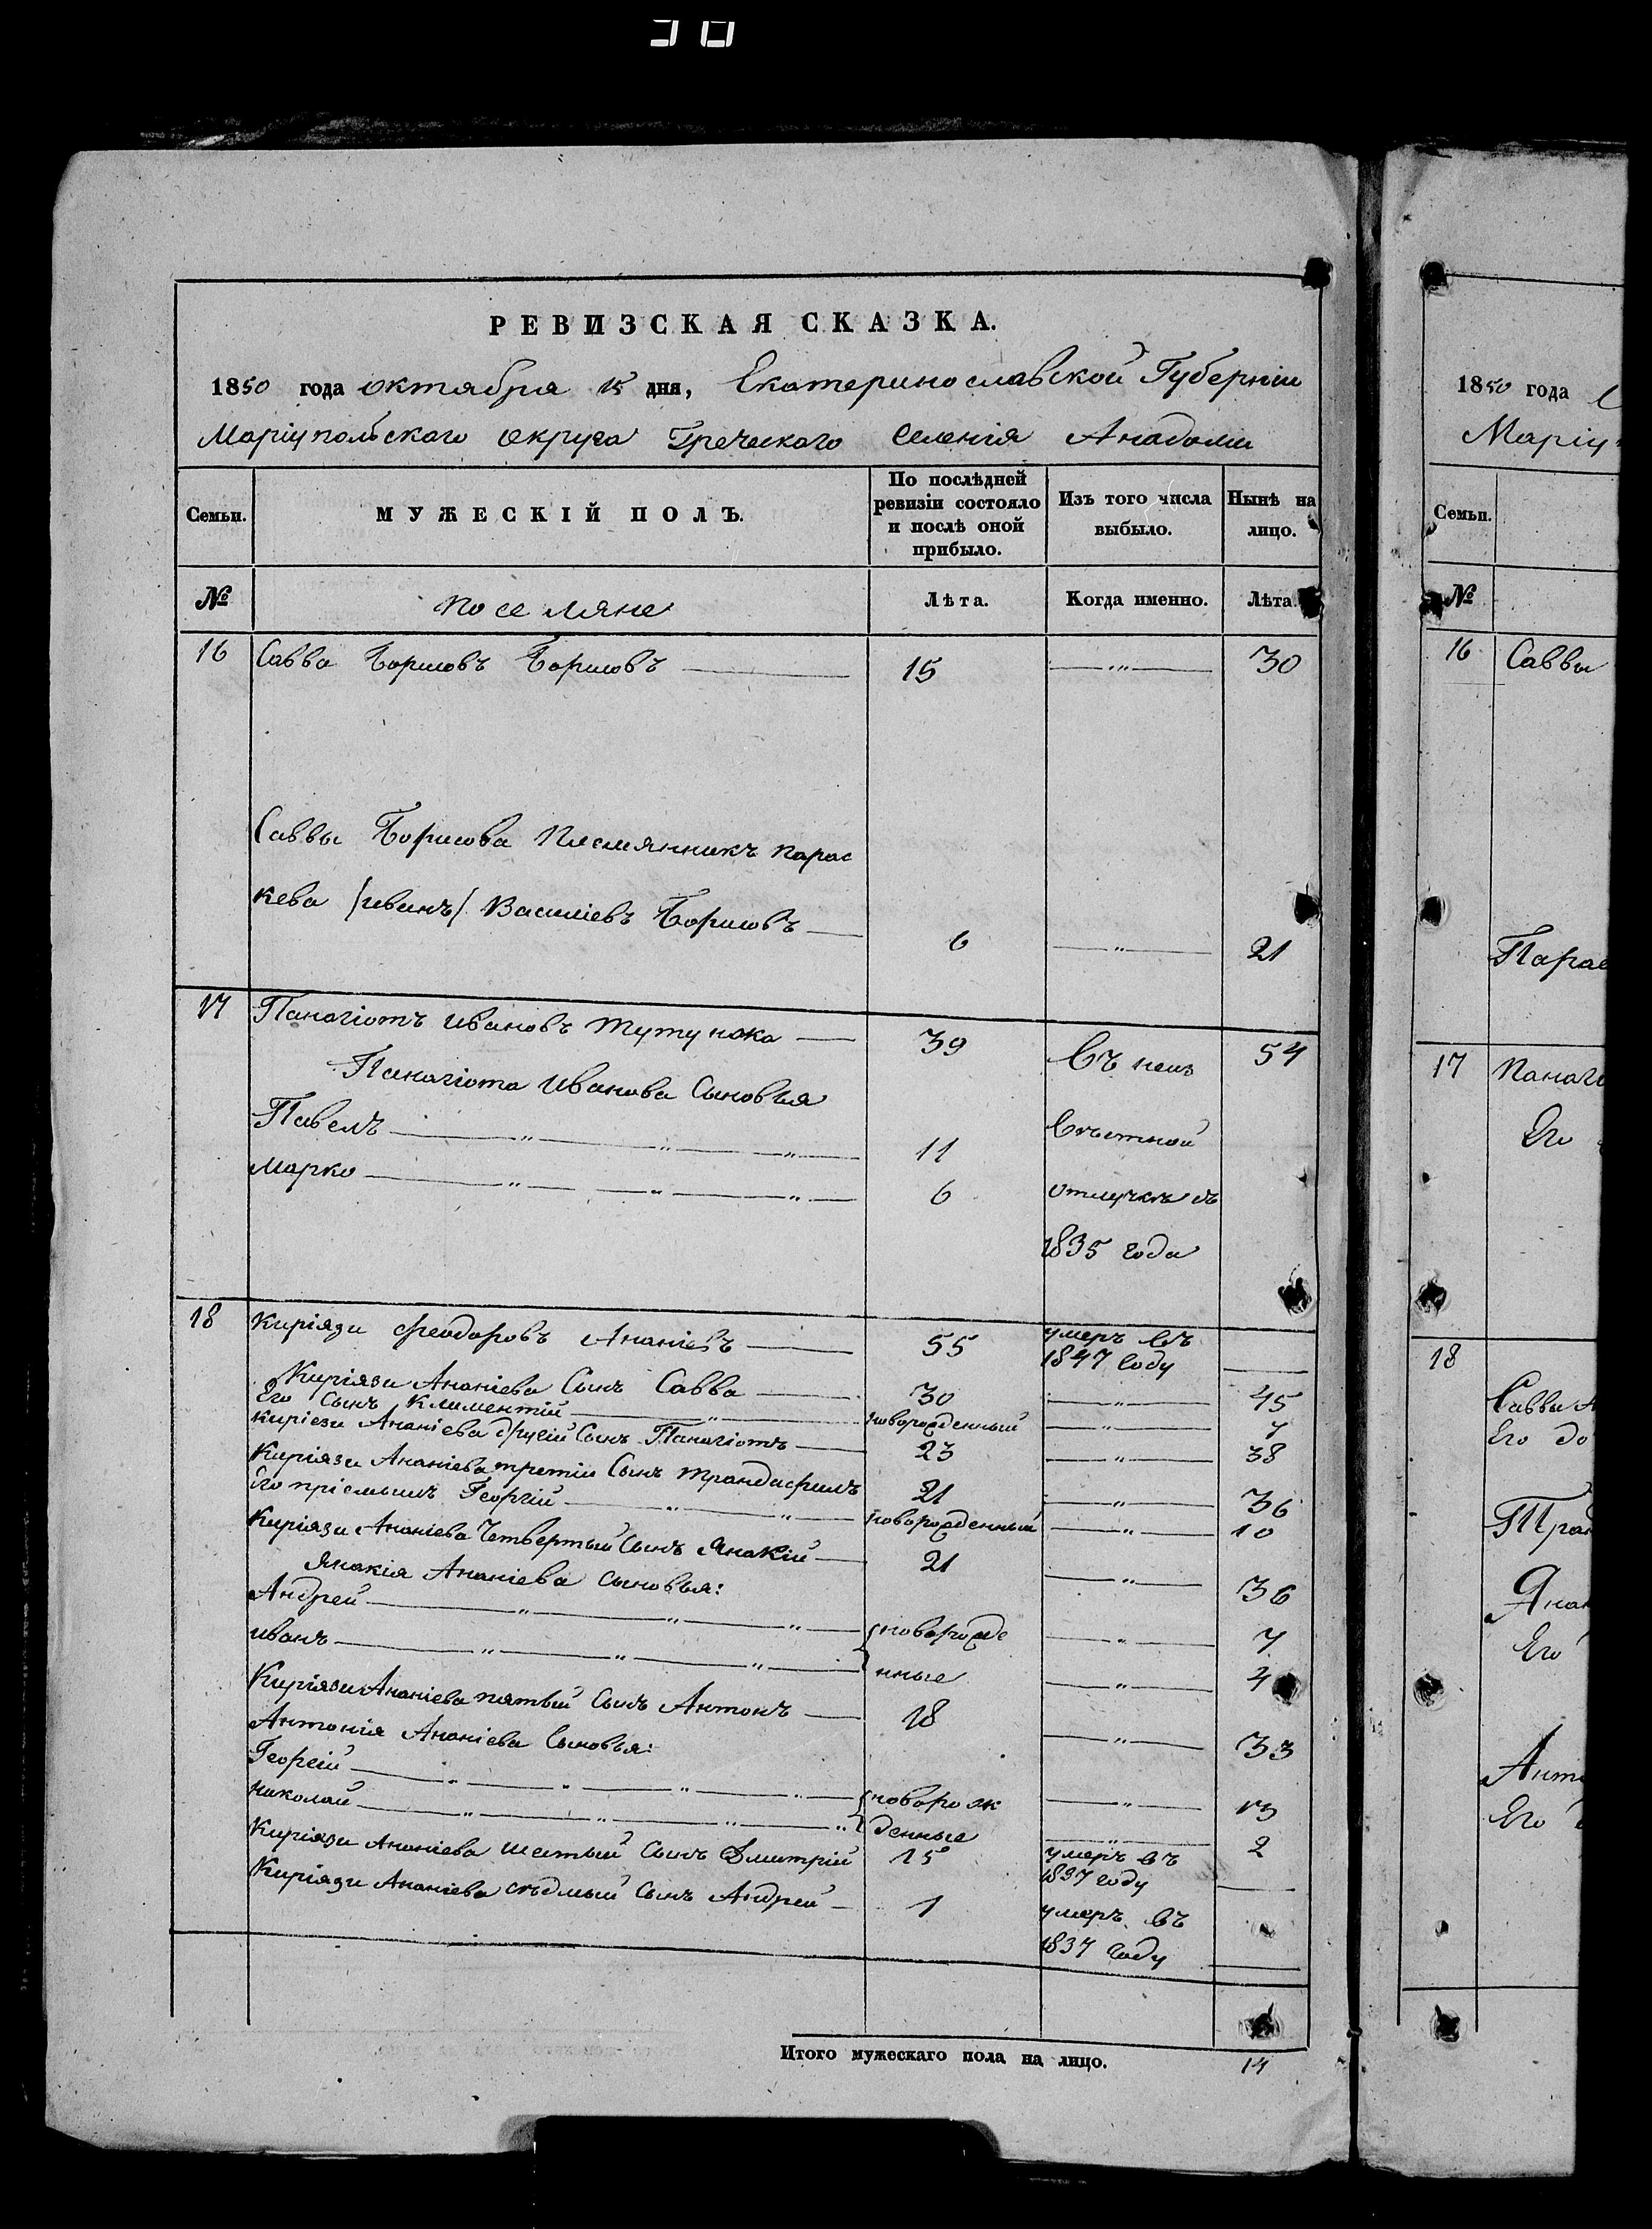 РЕВИЗСКАЯ СКАЗКА.
1850 года октября 15 дня, Екатеринославской Губерніи
Маріупольскаго округа Греческаго селенія Анадоли
Семьи. МУЖЕСКІЙ ПОЛЪ. По послѣдней ревизіи состояло и послѣ оной прибыло. Изъ того числа выбыло. Нынѣ на лицо.
№ поселяне Лѣта. Когда именно. Лѣта.
16 Савва Борисовъ Борисовъ 15 — " — 30
Саввы Борисова племянникъ парас
кева /иванъ/ Василіевъ Борисовъ 6 — " — 21
17 Панагіотъ ивановъ тутунжа 39 Въ неиз 54
Панагіота Иванова сыновья
Павелъ — " — " — " — 11 вѣстной
Марко — " — " — " — 6 отлучкѣ съ
1835 года
18 Киріязи Феодоровъ Ананіевъ 55 умеръ въ 1847 году —
Киріязи Ананіева Сынъ Савва 30 — " — 45
Его Сынъ Климентій — " — новорожденный — " — 7
киріези Ананіева другій Сынъ Панагіотъ 23 — " — 38
Киріязи Ананіева третій Сынъ трандафилъ 21 — " — 36
Его пріемышъ Георгій — " — " — новорожденный — " — 10
Киріязи Ананіева Четвертый Сынъ Янакій 21 — " — 36
Янакія Ананіева сыновья:
Андрей — " — " — " — новорожде — " — 7
иванъ — " — " — " — нные — " — 4
Киріязи Ананіева пятый Сынъ Антонъ 18 — " — 33
Антонія Ананіева Сыновья:
Георгій — " — " — " — " — новорож — " — 13
николай — " — " — " — " денные — " — 2
Киріязи Ананіева шестый Сынъ Дмитрій 15 умеръ въ 1837 году —
Киріязи Ананіева седмый Сынъ Андрей 1 умеръ въ
1837 году —
Итого мужескаго пола на лицо. 14
1850 года
Маріу
Семьи.
№
16 Саввы
Парас
17 Панаг
Его
18
Саввы А
Его до
Тран
Янак
Его
Анто
Его